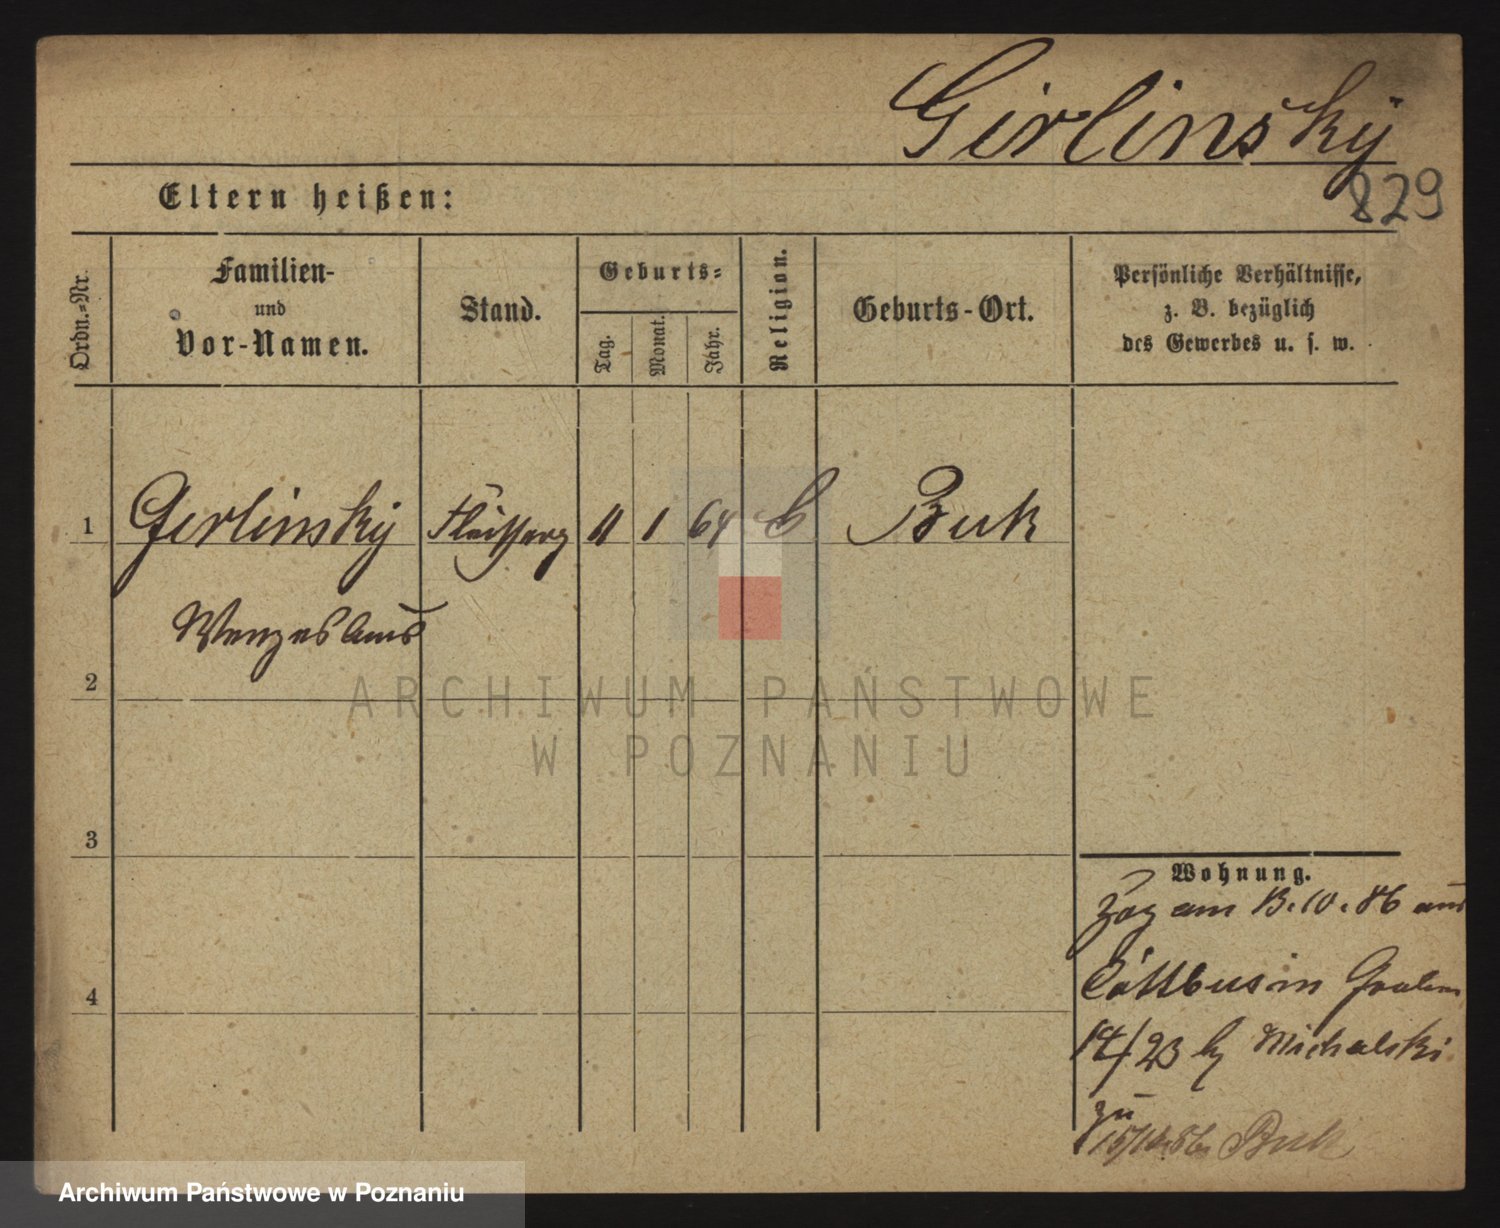 Girlinsky
829
Eltern heißen:
Ordn.-Nr.
Familien-
und
Vor-Namen.
Stand.
Geburts-
Tag.
Monat.
Jahr.
Religion.
Geburts-Ort.
Persönliche Verhältnisse,
z. B. bezüglich
des Gewerbes u. s. w.
1 Girlinsky 11 1 64 Buk
Wenzeslaus
2
3
4
Wohnung.
Zog am 13.10.86 aus
Cottbus in Graben
14/23 by Michalski
zu
Buk
ARCHIWUM PAŃSTWOWE
W POZNANIU
Archiwum Państwowe w Poznaniu